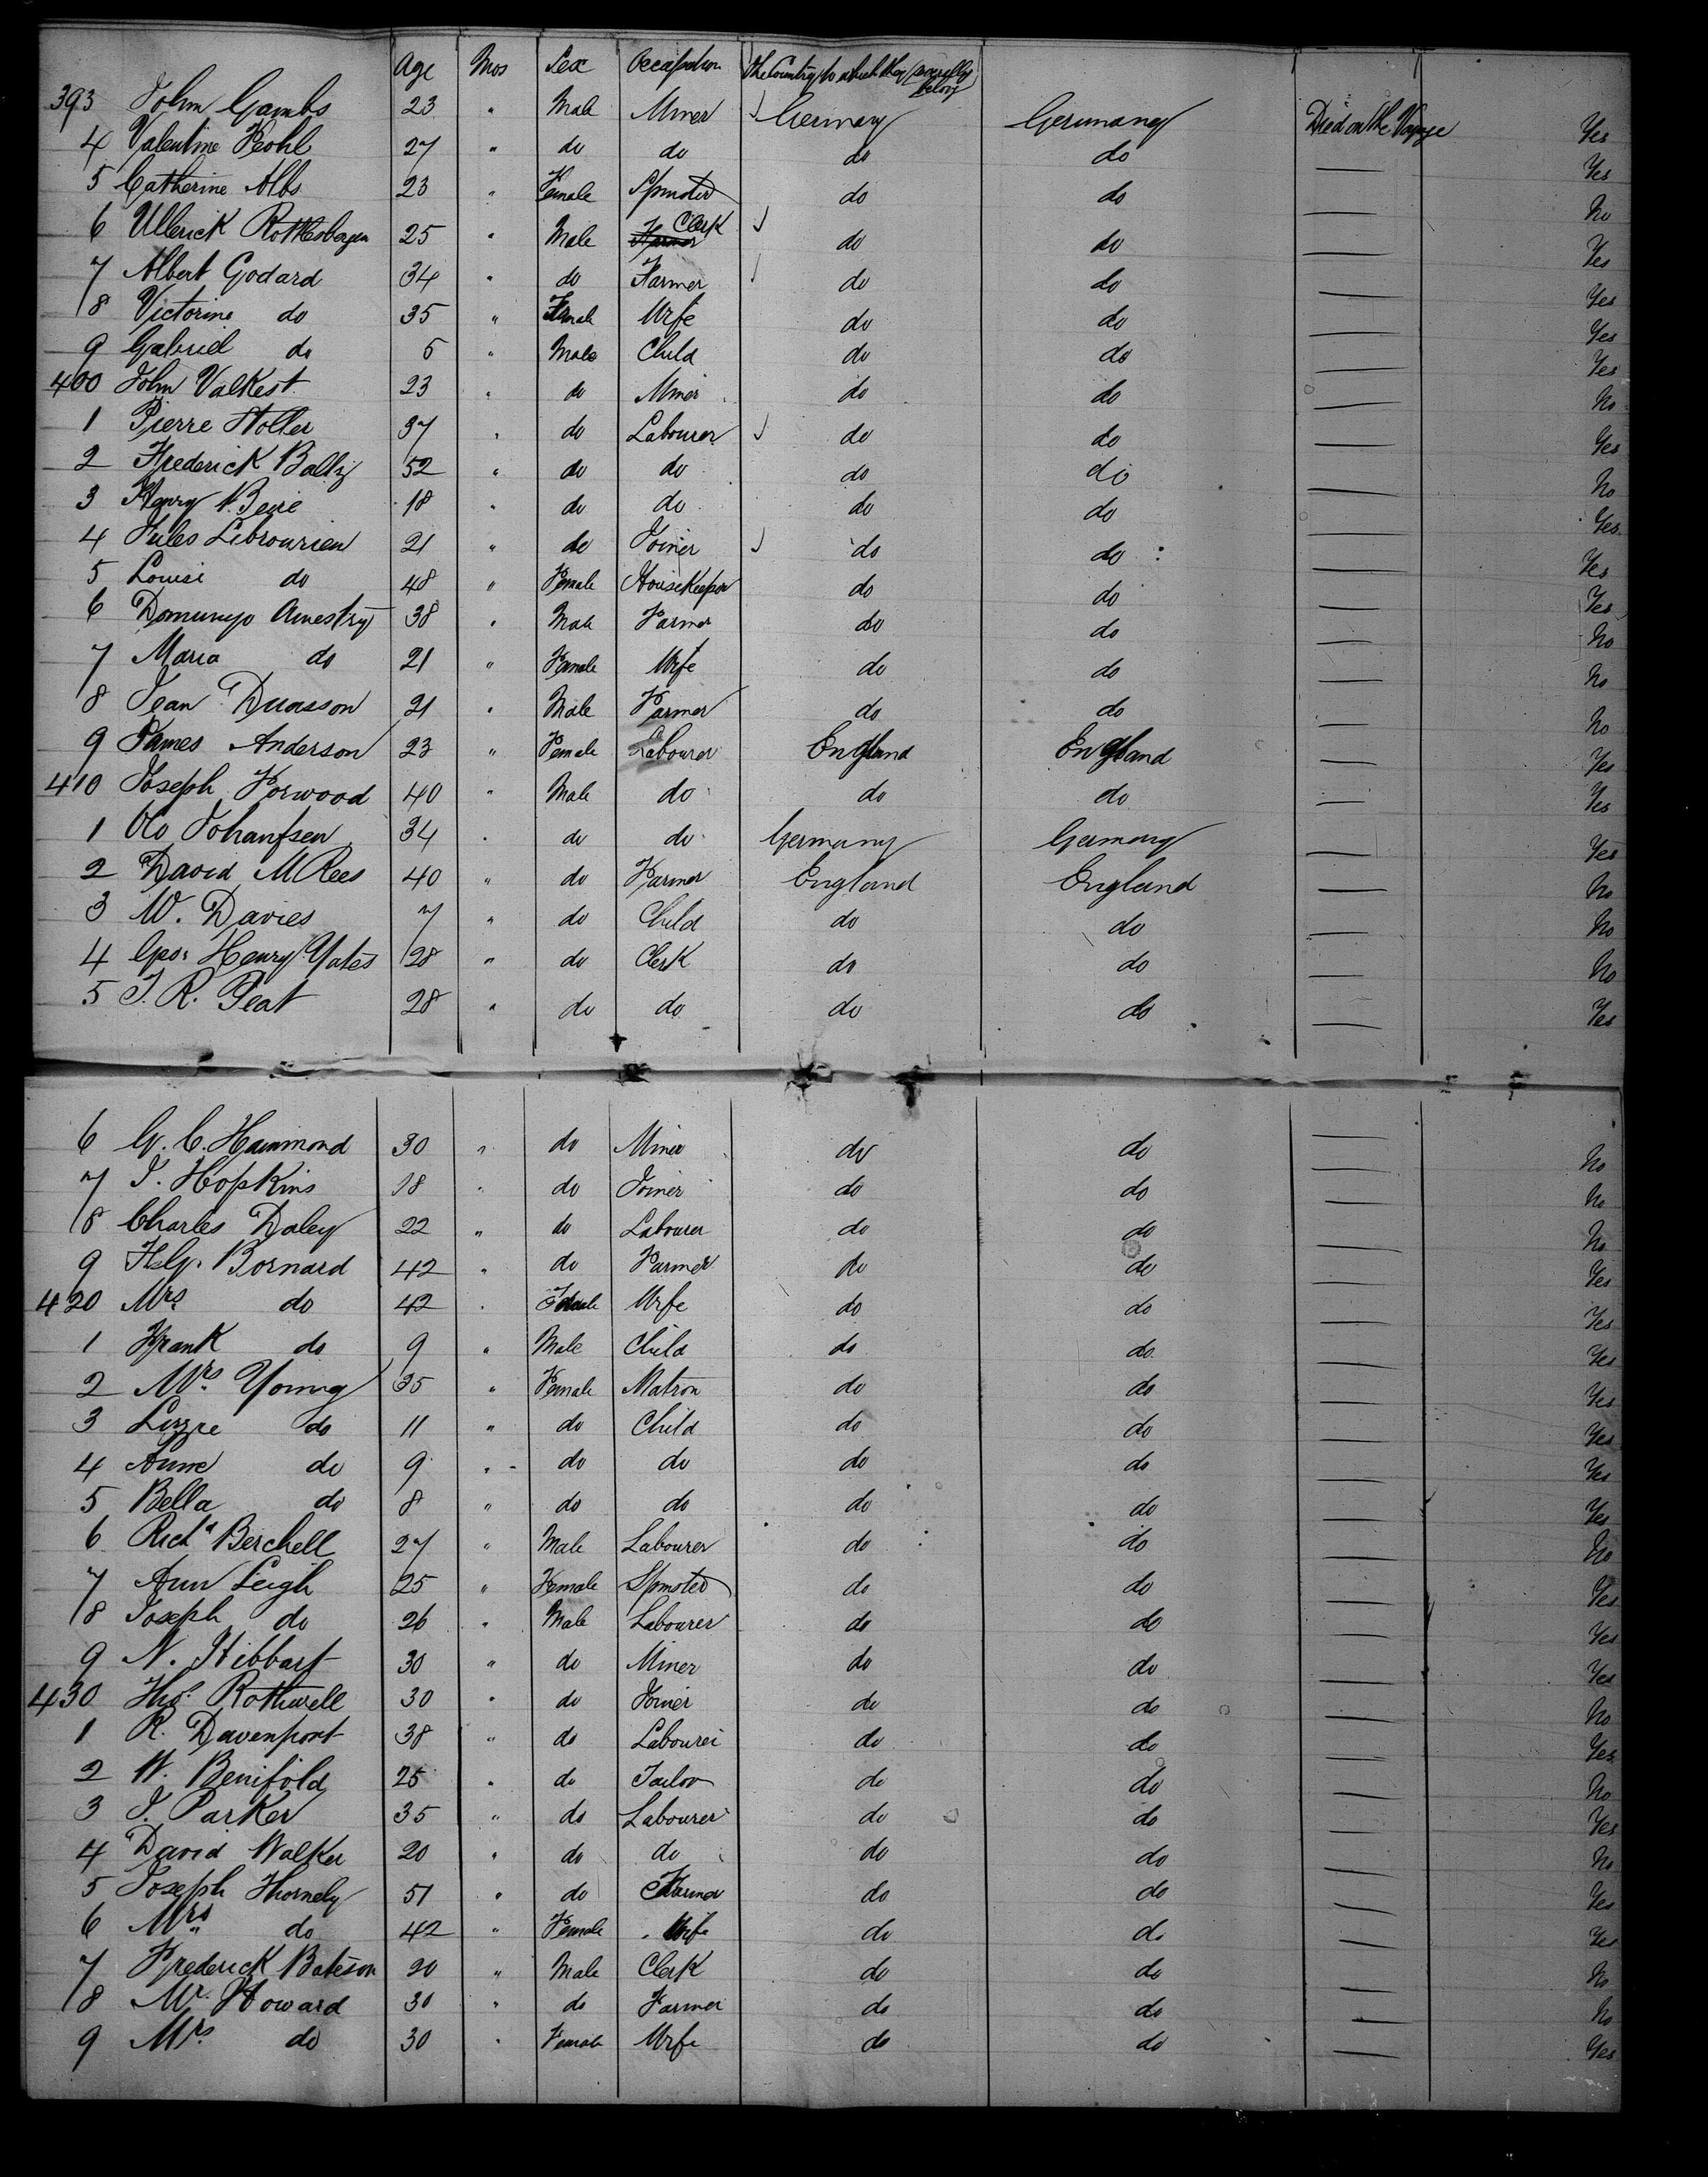 Age Mos Sex Occupation The Country to which they severally belong
393 John Gambs 23 " Male Miner Germany Germany Died on the Voyage Yes
4 Valentine Kohl 27 " do do do do — Yes
5 Catherine Albs 23 " Female Spinster do do — No
6 Ullerick Rothesbergen 25 " Male Farmer Clerk do do — Yes
7 Albert Godard 34 " do Farmer do do — Yes
8 Victorine do 35 " Female Wife do do — Yes
9 Gabriel do 5 " Male Child do do — Yes
400 John Valkest 23 " do Miner do do — No
1 Pierre Holler 37 " do Labourer do do — Yes
2 Frederick 52 " do do do do — No
3 Henry 18 " do do do do — Yes
4 Jules Librourien 21 " do Joiner do do — Yes
5 Louise do 48 " Female HouseKeeper do do — Yes
6 Amestry 38 " Male Farmer do do — No
7 Maria do 21 " Female Wife do do — No
8 Jean Duasson 21 " Male Farmer do do — No
9 James Anderson 23 " Female Labourer England England — Yes
410 Joseph Forwood 40 " Male do do do — Yes
1 Johanssen 34 " do do Germany Germany — Yes
2 David M Rees 40 " do Farmer England England — No
3 W. Davies 7 " do Child do do — No
4 Geo. Henry Yates 28 " do Clerk do do — No
5 J. R. Peat 28 " do do do do — Yes
6 G. C. Hammond 30 " do Miner do do — No
7 J. Hopkins 18 " do Joiner do do — No
8 Charles Daley 22 " do Labourer do do — No
9 Bornard 42 " do Farmer do do — Yes
420 Mrs do 42 " Female Wife do do — Yes
1 Frank do 9 " Male Child do do — Yes
2 Mrs Young 35 " Female Matron do do — Yes
3 Lizzie do 11 " do Child do do — Yes
4 Annie do 9 " do do do do — Yes
5 Bella do 8 " do do do do — Yes
6 Richd Berchell 27 " Male Labourer do do — No
7 Ann Leigh 25 " Female Spinster do do — Yes
8 Joseph do 26 " Male Labourer do do — Yes
9 N. Hibbart 30 " do Miner do do — Yes
430 Thos. Rothwell 30 " do Joiner do do — No
1 R. Davenport 38 " do Labourer do do — Yes
2 W. Benifold 25 " do Tailor do do — No
3 J. Parker 35 " do Labourer do do — Yes
4 David Walker 20 " do do do do — No
5 Joseph Thornely 51 " do Farmer do do — Yes
6 Mrs do 42 " Female Wife do do — Yes
7 Frederick Bateson 20 " Male Clerk do do — No
8 Mr. Howard 30 " do Farmer do do — No
9 Mrs do 30 " Female Wife do do — Yes